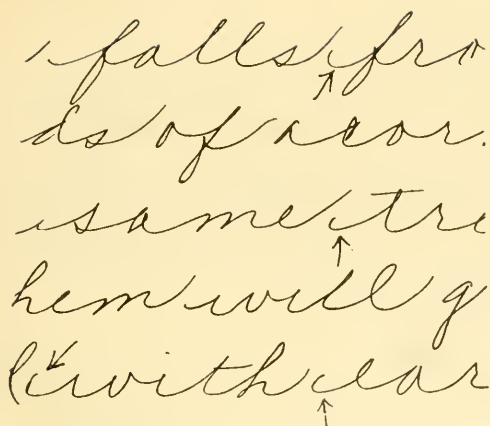 falls fro
ds of acor
same tre
hem will g
with ear